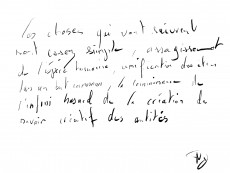 Les choses qui vont suivrent
sont assez simple, assagissement
de l'espèce humaine, unification dans
un but commun, la connaissance de
l'infini hasard de la création du
savoir créatif des entités